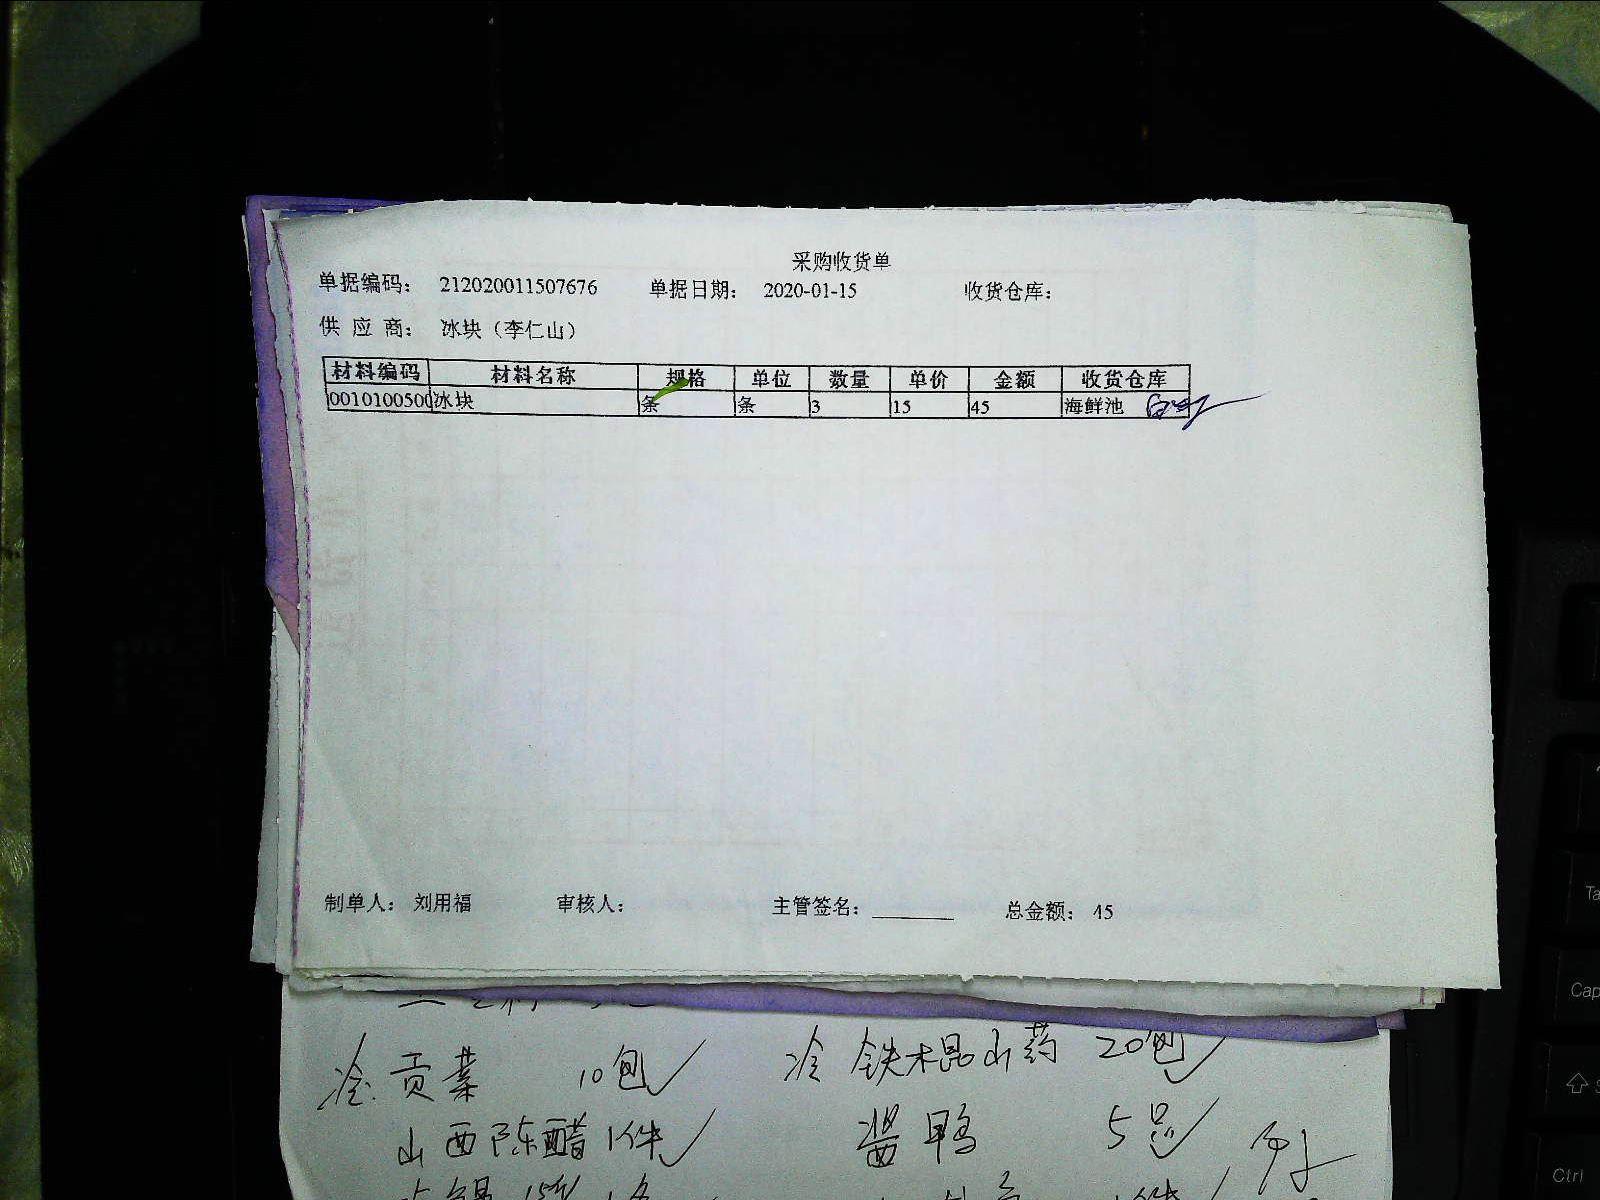 采购收货单
单据编码： 212020011507676 单据日期： 2020-01-15 收货仓库：
供 应 商： 冰块（李仁山）
材料编码 材料名称 规格 单位 数量 单价 金额 收货仓库
0010100500 冰块 条 条 3 15 45 海鲜池
制单人： 刘用福 审核人： 主管签名： 总金额： 45
冷 贡菜 10包 冷 铁木昆山药 20包
山西陈醋 1件 酱鸭 5只
Ta
Cap
Ctrl